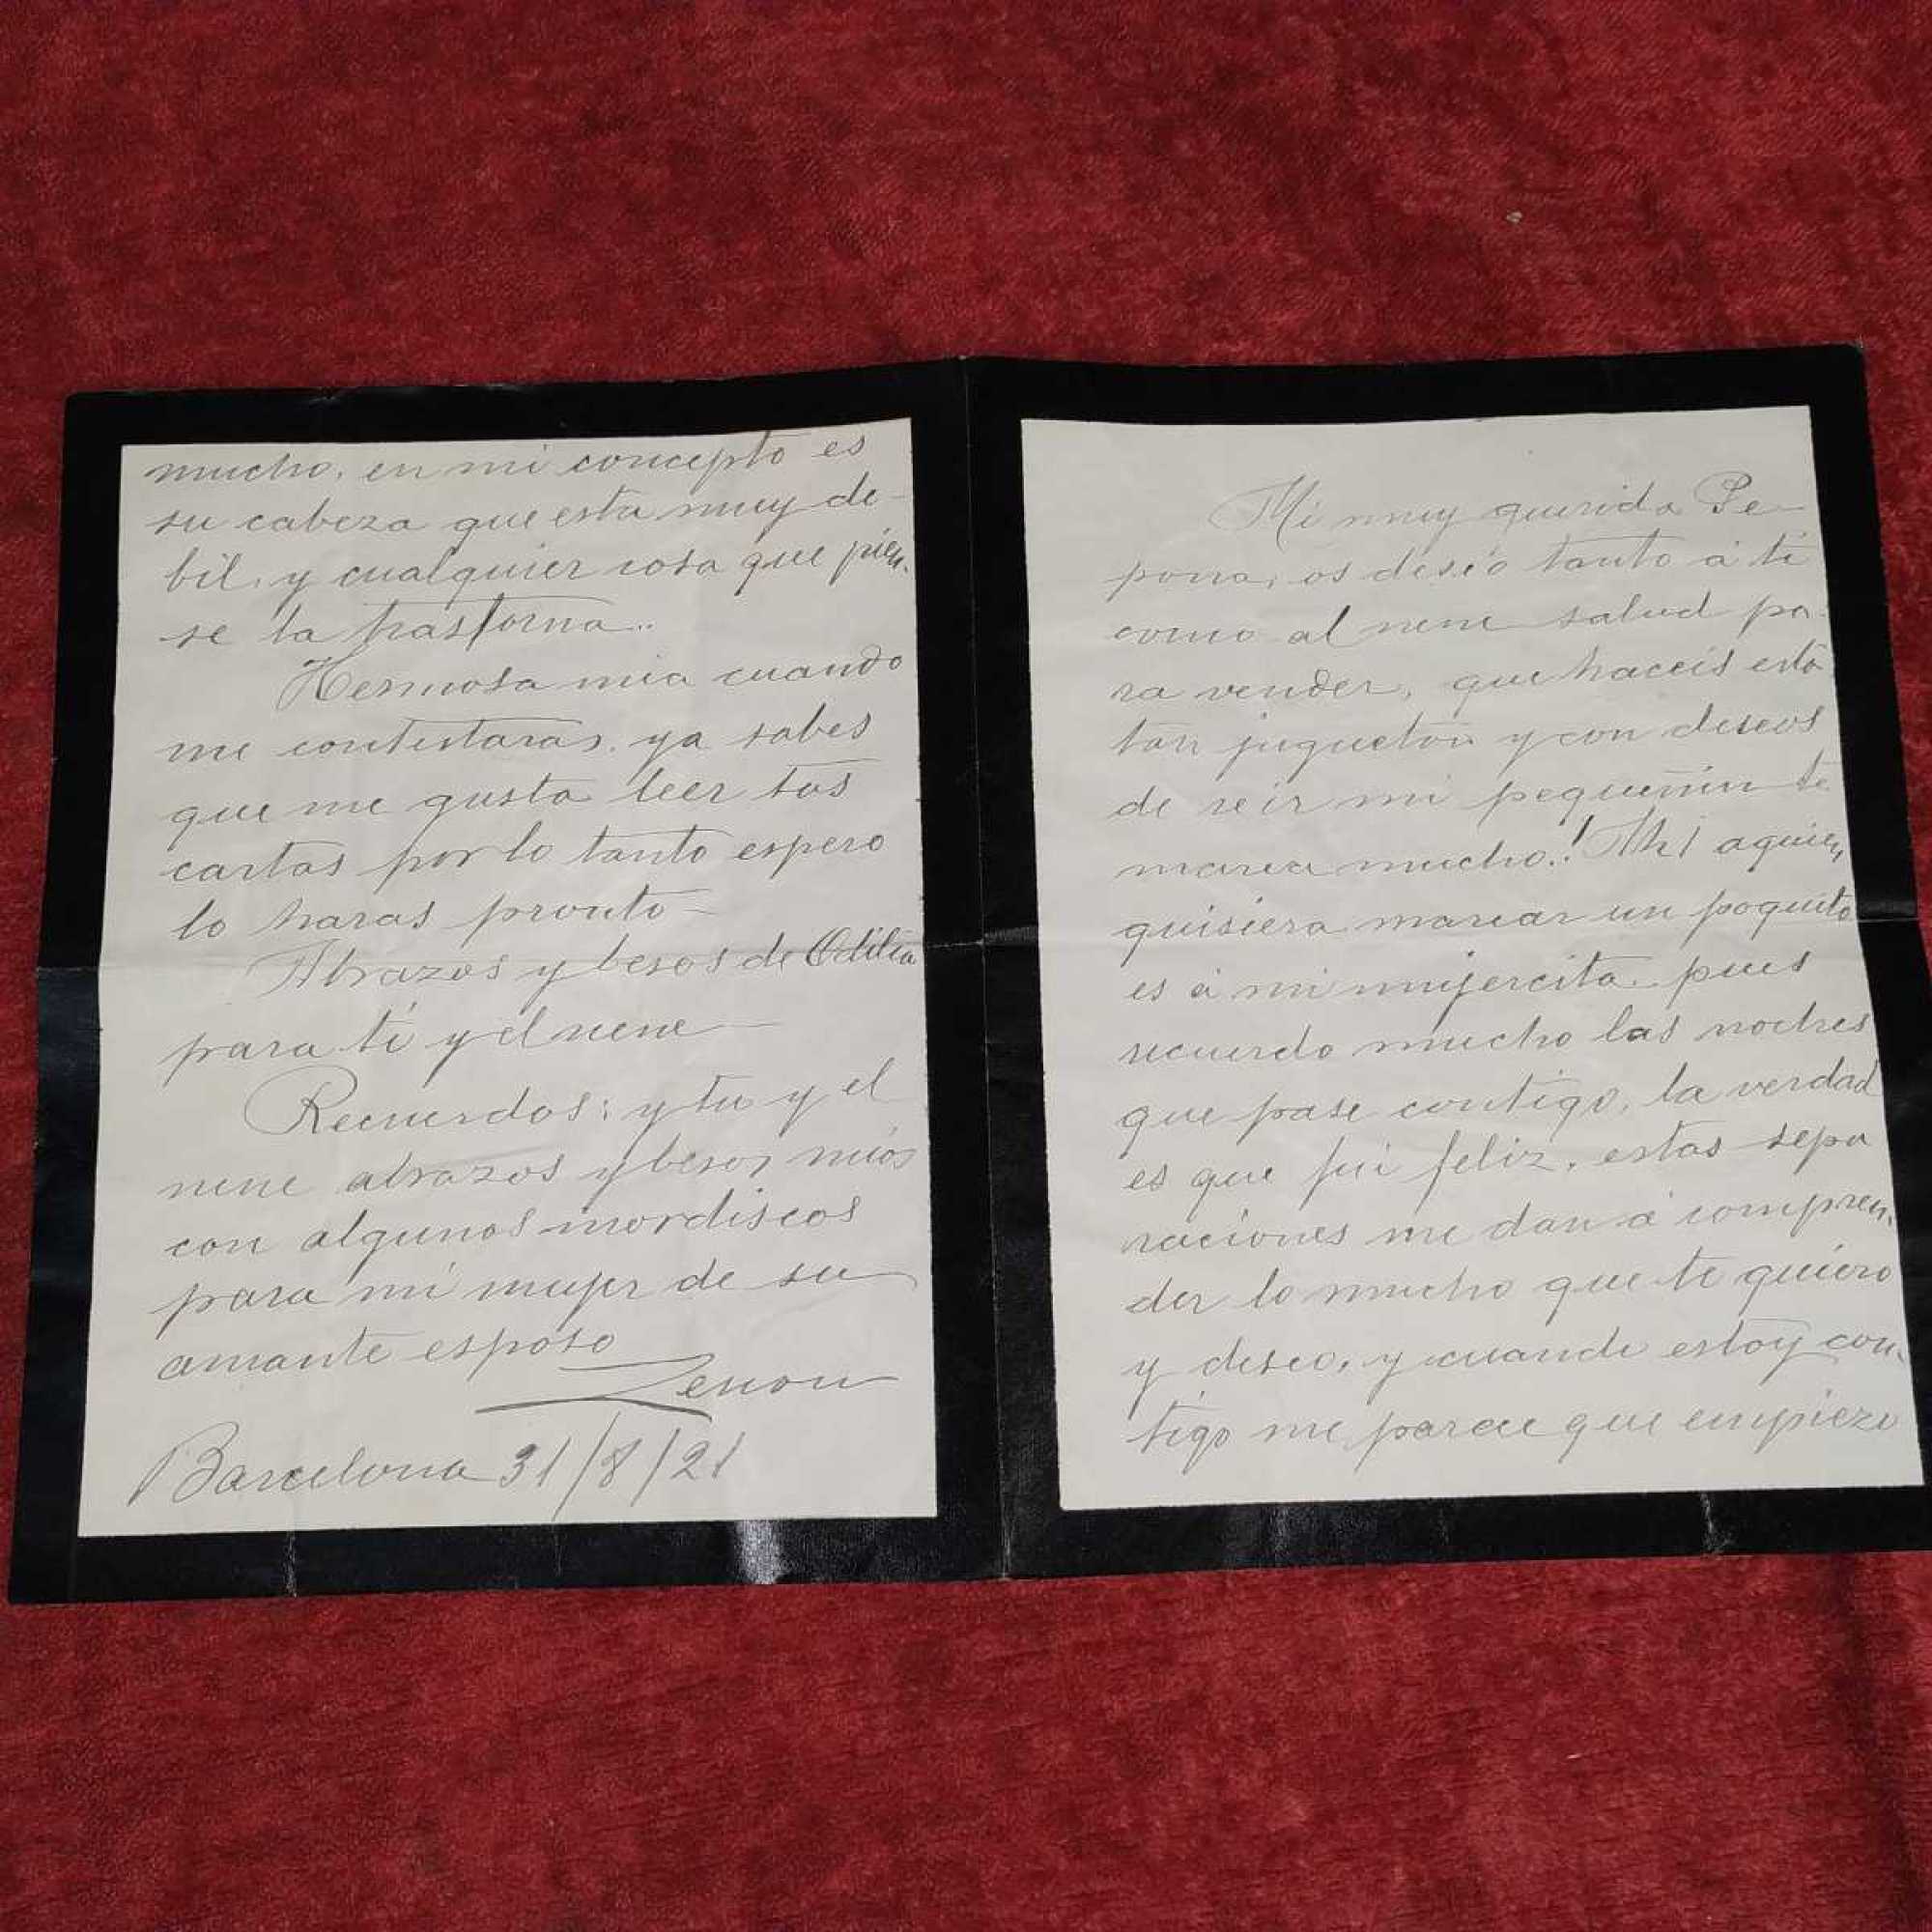 mucho, en mi concepto es
su cabeza que esta muy de-
bil, y cualquier cosa que pien-
se la trastorna..
Hermosa mia cuando
me contestaras, ya sabes
que me gusta leer tus
cartas por lo tanto espero
lo haras pronto-
Abrazos y besos de Odilia
para ti y el nene-
Recuerdos; y tu y el
nene abrazos y besos mios
con algunos mordiscos
para mi mujer de su
amante esposo
Zenon
Barcelona 31/8/21
Mi muy querida Pe-
pona, os deseo tanto á ti
como al nene salud pa-
ra vender, que haceis esta
tan jugueton y con deseos
de reir mi pequeñin te
marea mucho.! Ah! aquien
quisiera marear un poquito
es á mi mujercita. pues
recuerdo mucho las noches
que pase contigo, la verdad
es que fui feliz, estas sepa
raciones me dan á compren-
der lo mucho que te quiero
y deseo, y cuando estoy con-
tigo me parece que empiezo